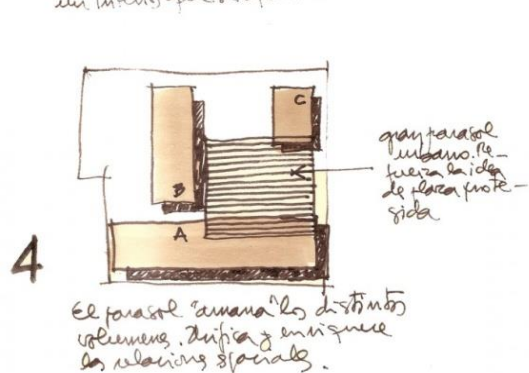 C
gran parasol
urbano. Re-
fuerza la idea
de plaza prote-
gida
B
A
4
El parasol "amarra" los distintos
volumenes. Unifica y enriquece
las relaciones espaciales.